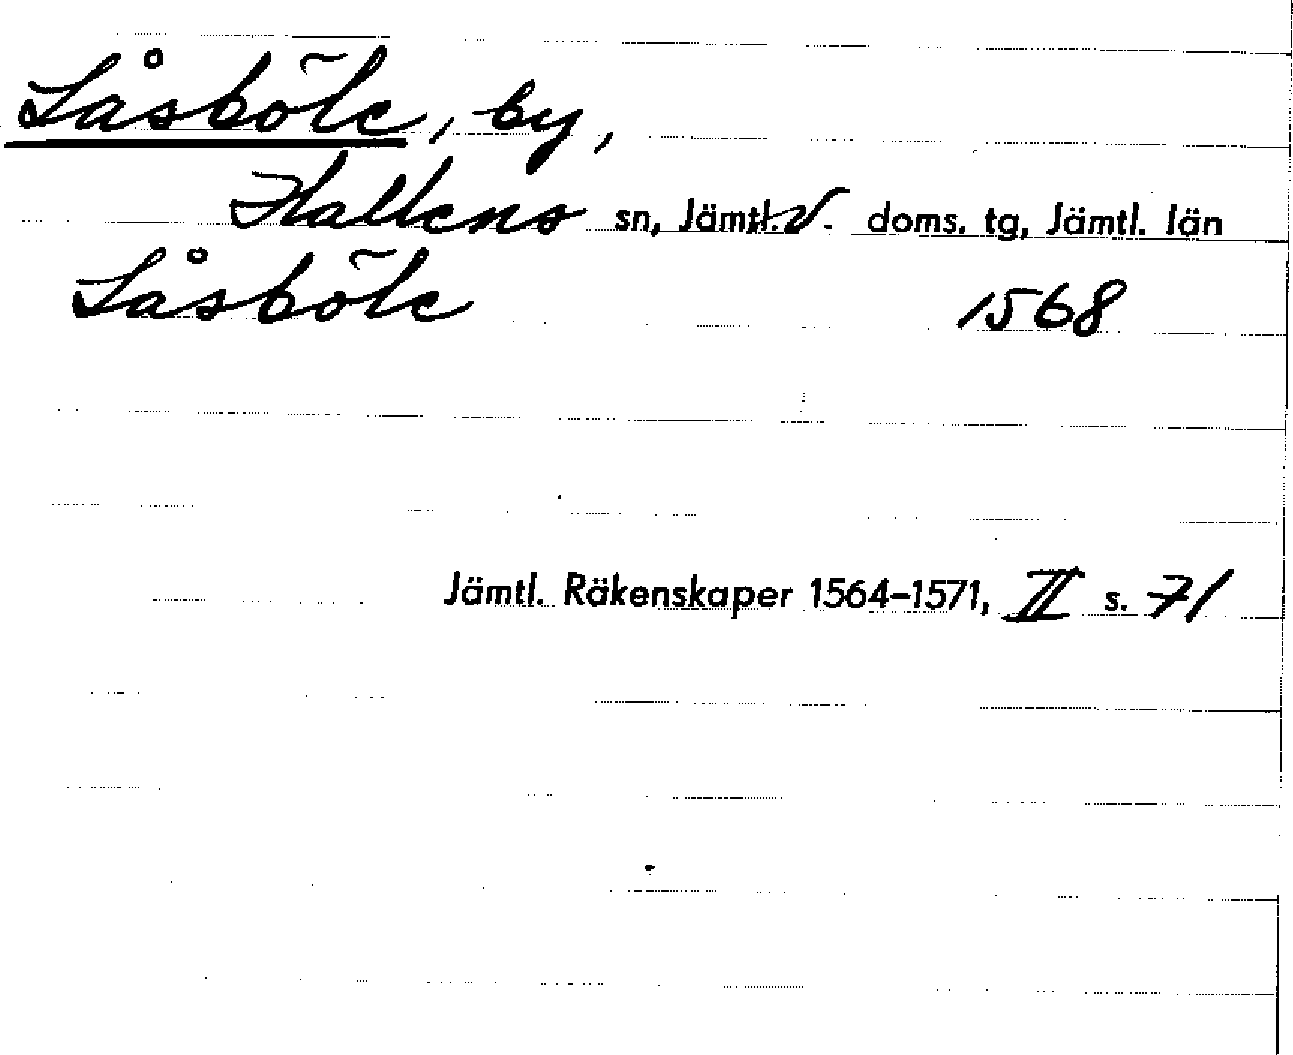 Låsböle, by,
Hallens sn, Jämtl. V. doms. tg, Jämtl. län
Låsböle 1568
Jämtl. Räkenskaper 1564–1571, II s. 71